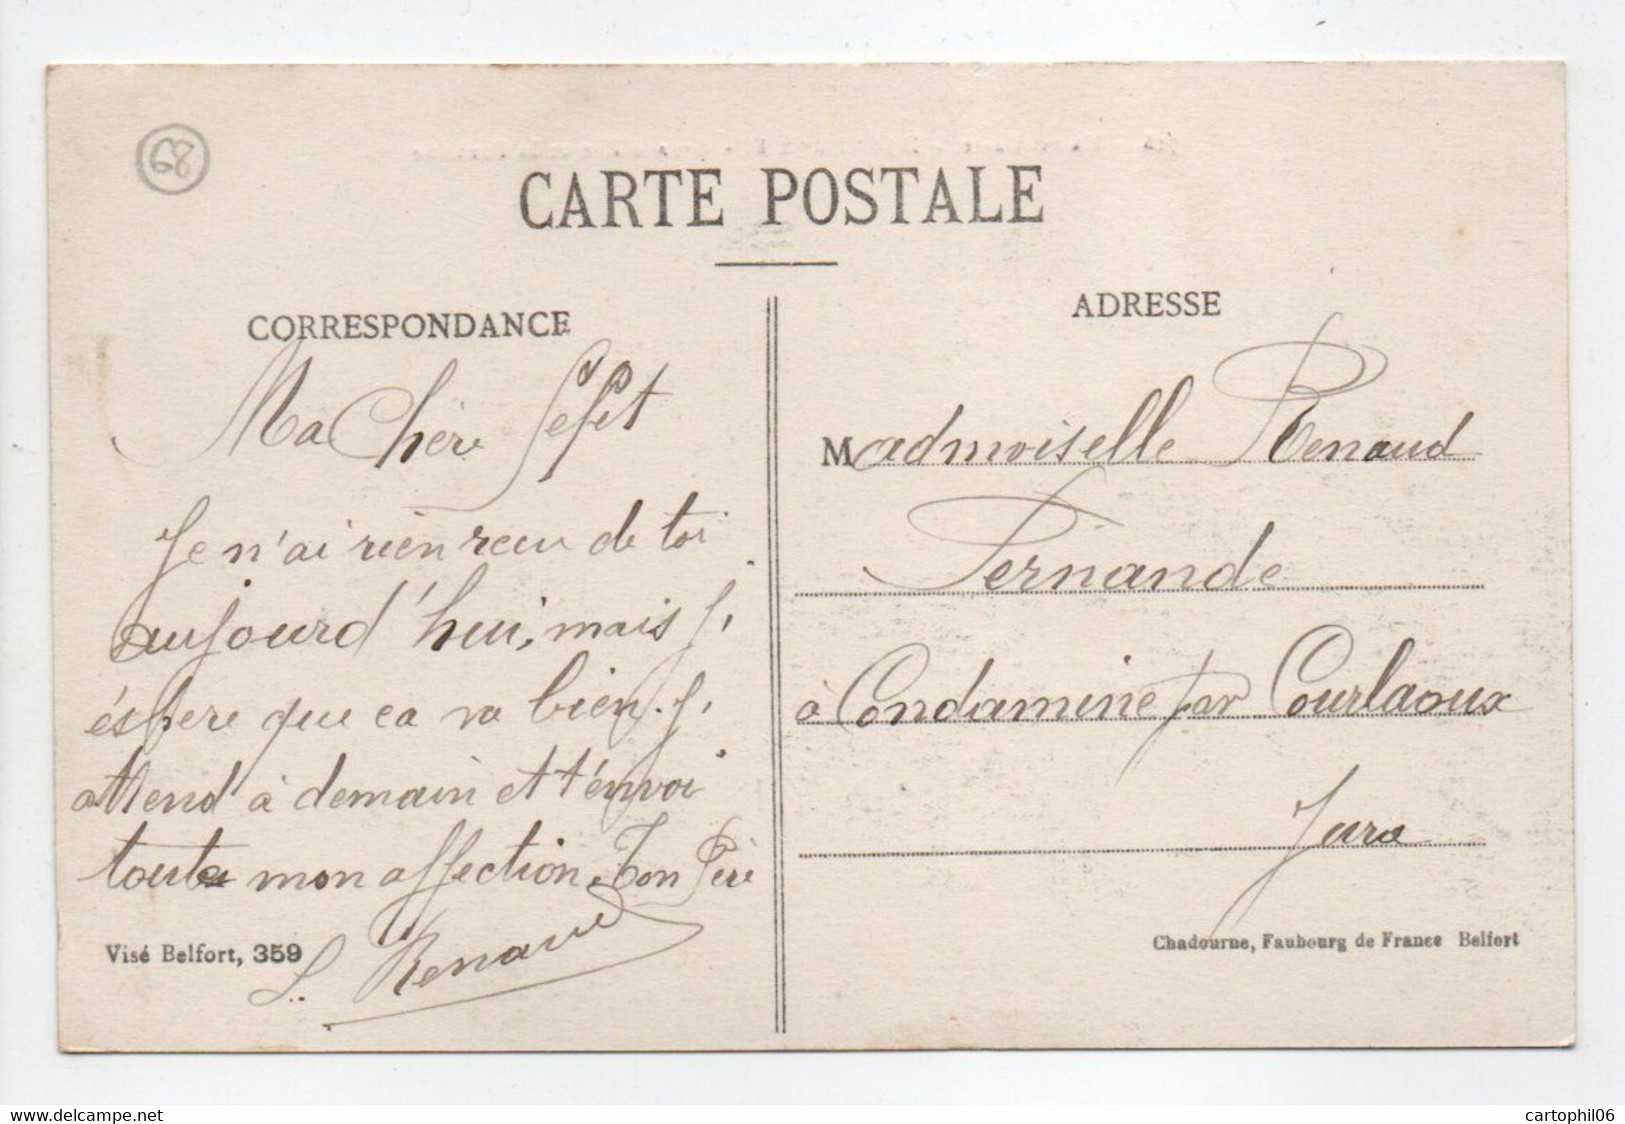 68
CARTE POSTALE
CORRESPONDANCE
Ma Chère Fefet
Je n'ai rien reçu de toi
aujourd'hui, mais j,
éspère que ca va bien. j,
attend à demain et t'envoi
toute mon affection. Ton Père
L. Renaud
Visé Belfort, 359
ADRESSE
Madmoiselle Renaud
Fernande
à Condamine par Courlaoux
Jura
Chadourne, Faubourg de France Belfort
www.delcampe.net
cartophil06